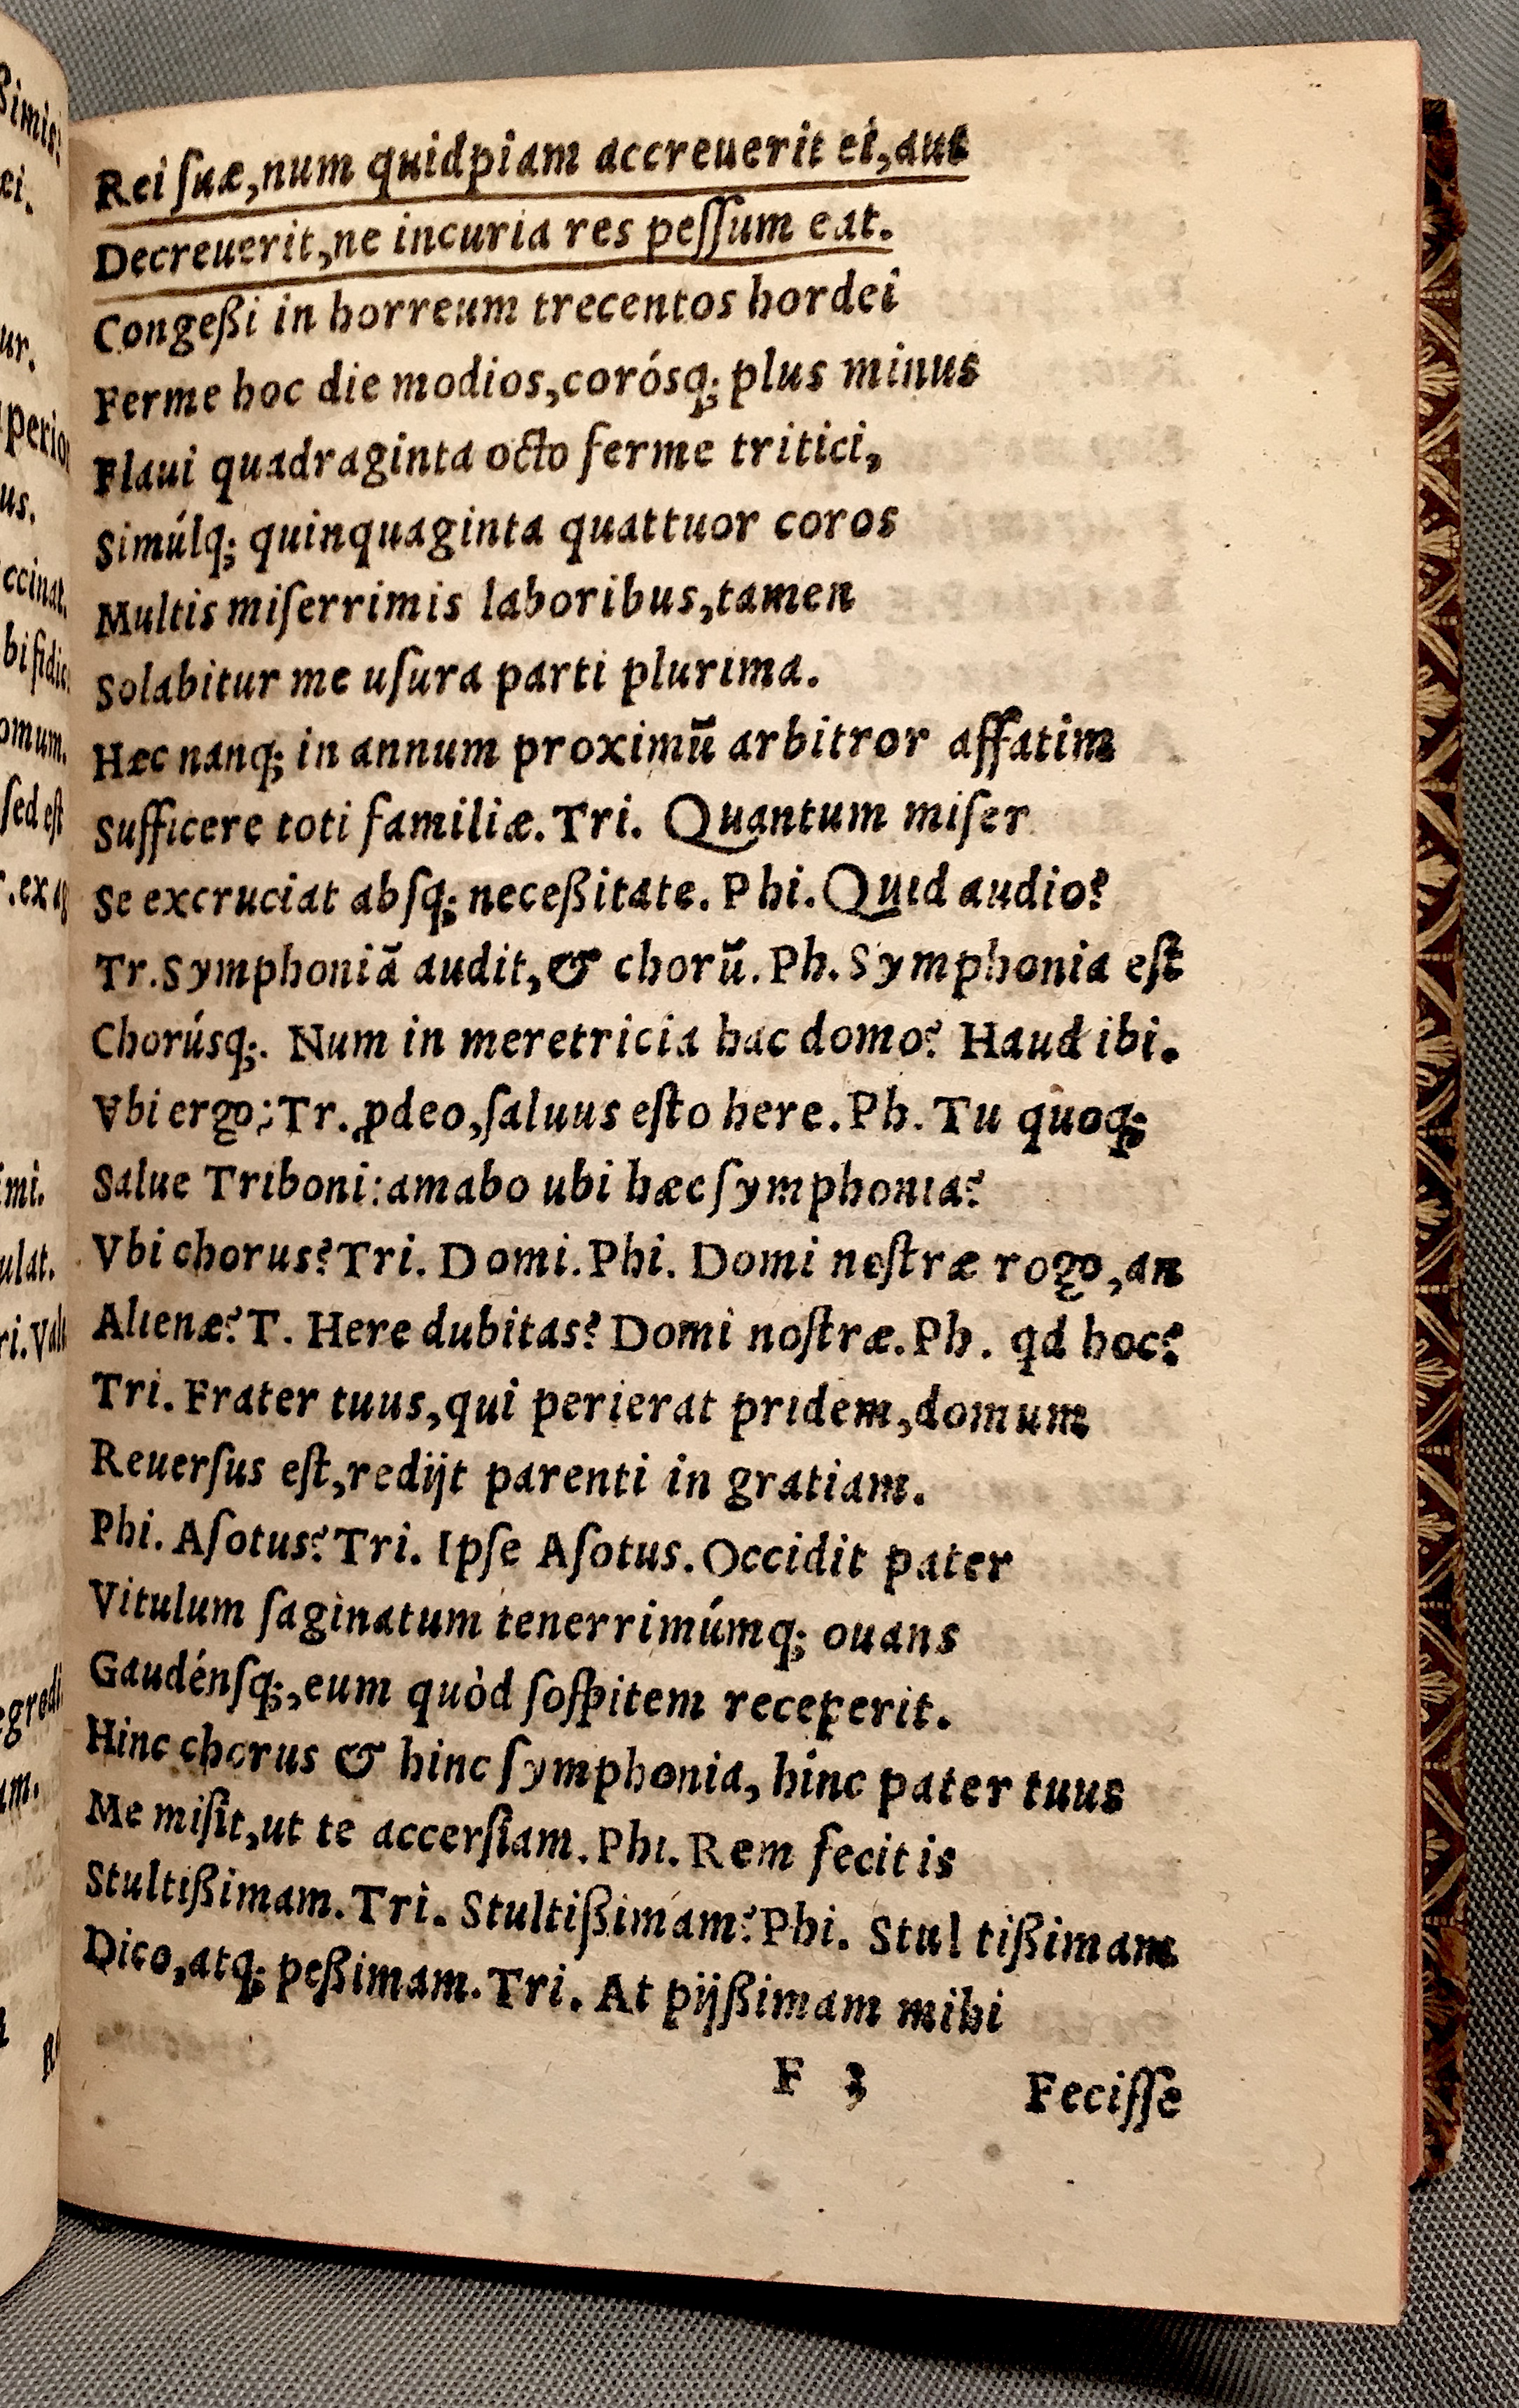 Rei ſuæ,num quidpiam accreuerit ei,aut
Decreuerit,ne incuria res peſſum eat.
Congeßi in horreum trecentos hordei
Ferme hoc die modios,corósq; plus minus
Flaui quadraginta octo ferme tritici,
Simúlq; quinquaginta quattuor coros
Multis miſerrimis laboribus,tamen
Solabitur me uſura parti plurima.
Hæc nanq; in annum proximū arbitror affatim
Sufficere toti familiæ.Tri. Quantum miſer
Se excruciat abſq; neceßitate. Phi. Quid audio?
Tr.Symphoniā audit,& chorū. Ph. Symphonia eſt
Chorúsq;. Num in meretricia hac domo? Haud ibi.
Vbi ergo; Tr. ꝓdeo,ſaluus eſto here. Ph. Tu quoq;
Salue Triboni:amabo ubi hæc ſymphonia?
Vbi chorus? Tri. Domi. Phi. Domi noſtræ rogo,an
Alienæ? T. Here dubitas? Domi noſtræ. Ph. qd hoc?
Tri. Frater tuus,qui perierat pridem,domum
Reuerſus eſt,redijt parenti in gratiam.
Phi. Aſotus? Tri. Ipſe Aſotus. Occidit pater
Vitulum ſaginatum tenerrimúmq; ouans
Gaudénſq;,eum quòd ſoſpitem receperit.
Hinc chorus & hinc ſymphonia, hinc pater tuus
Me miſit,ut te accerſiam. Phi. Rem fecit is
Stultißimam. Tri. Stultißimam? Phi. Stul tißimam
Dico,atq; peßimam. Tri. At pijßimam mihi
F 3 Feciſſe